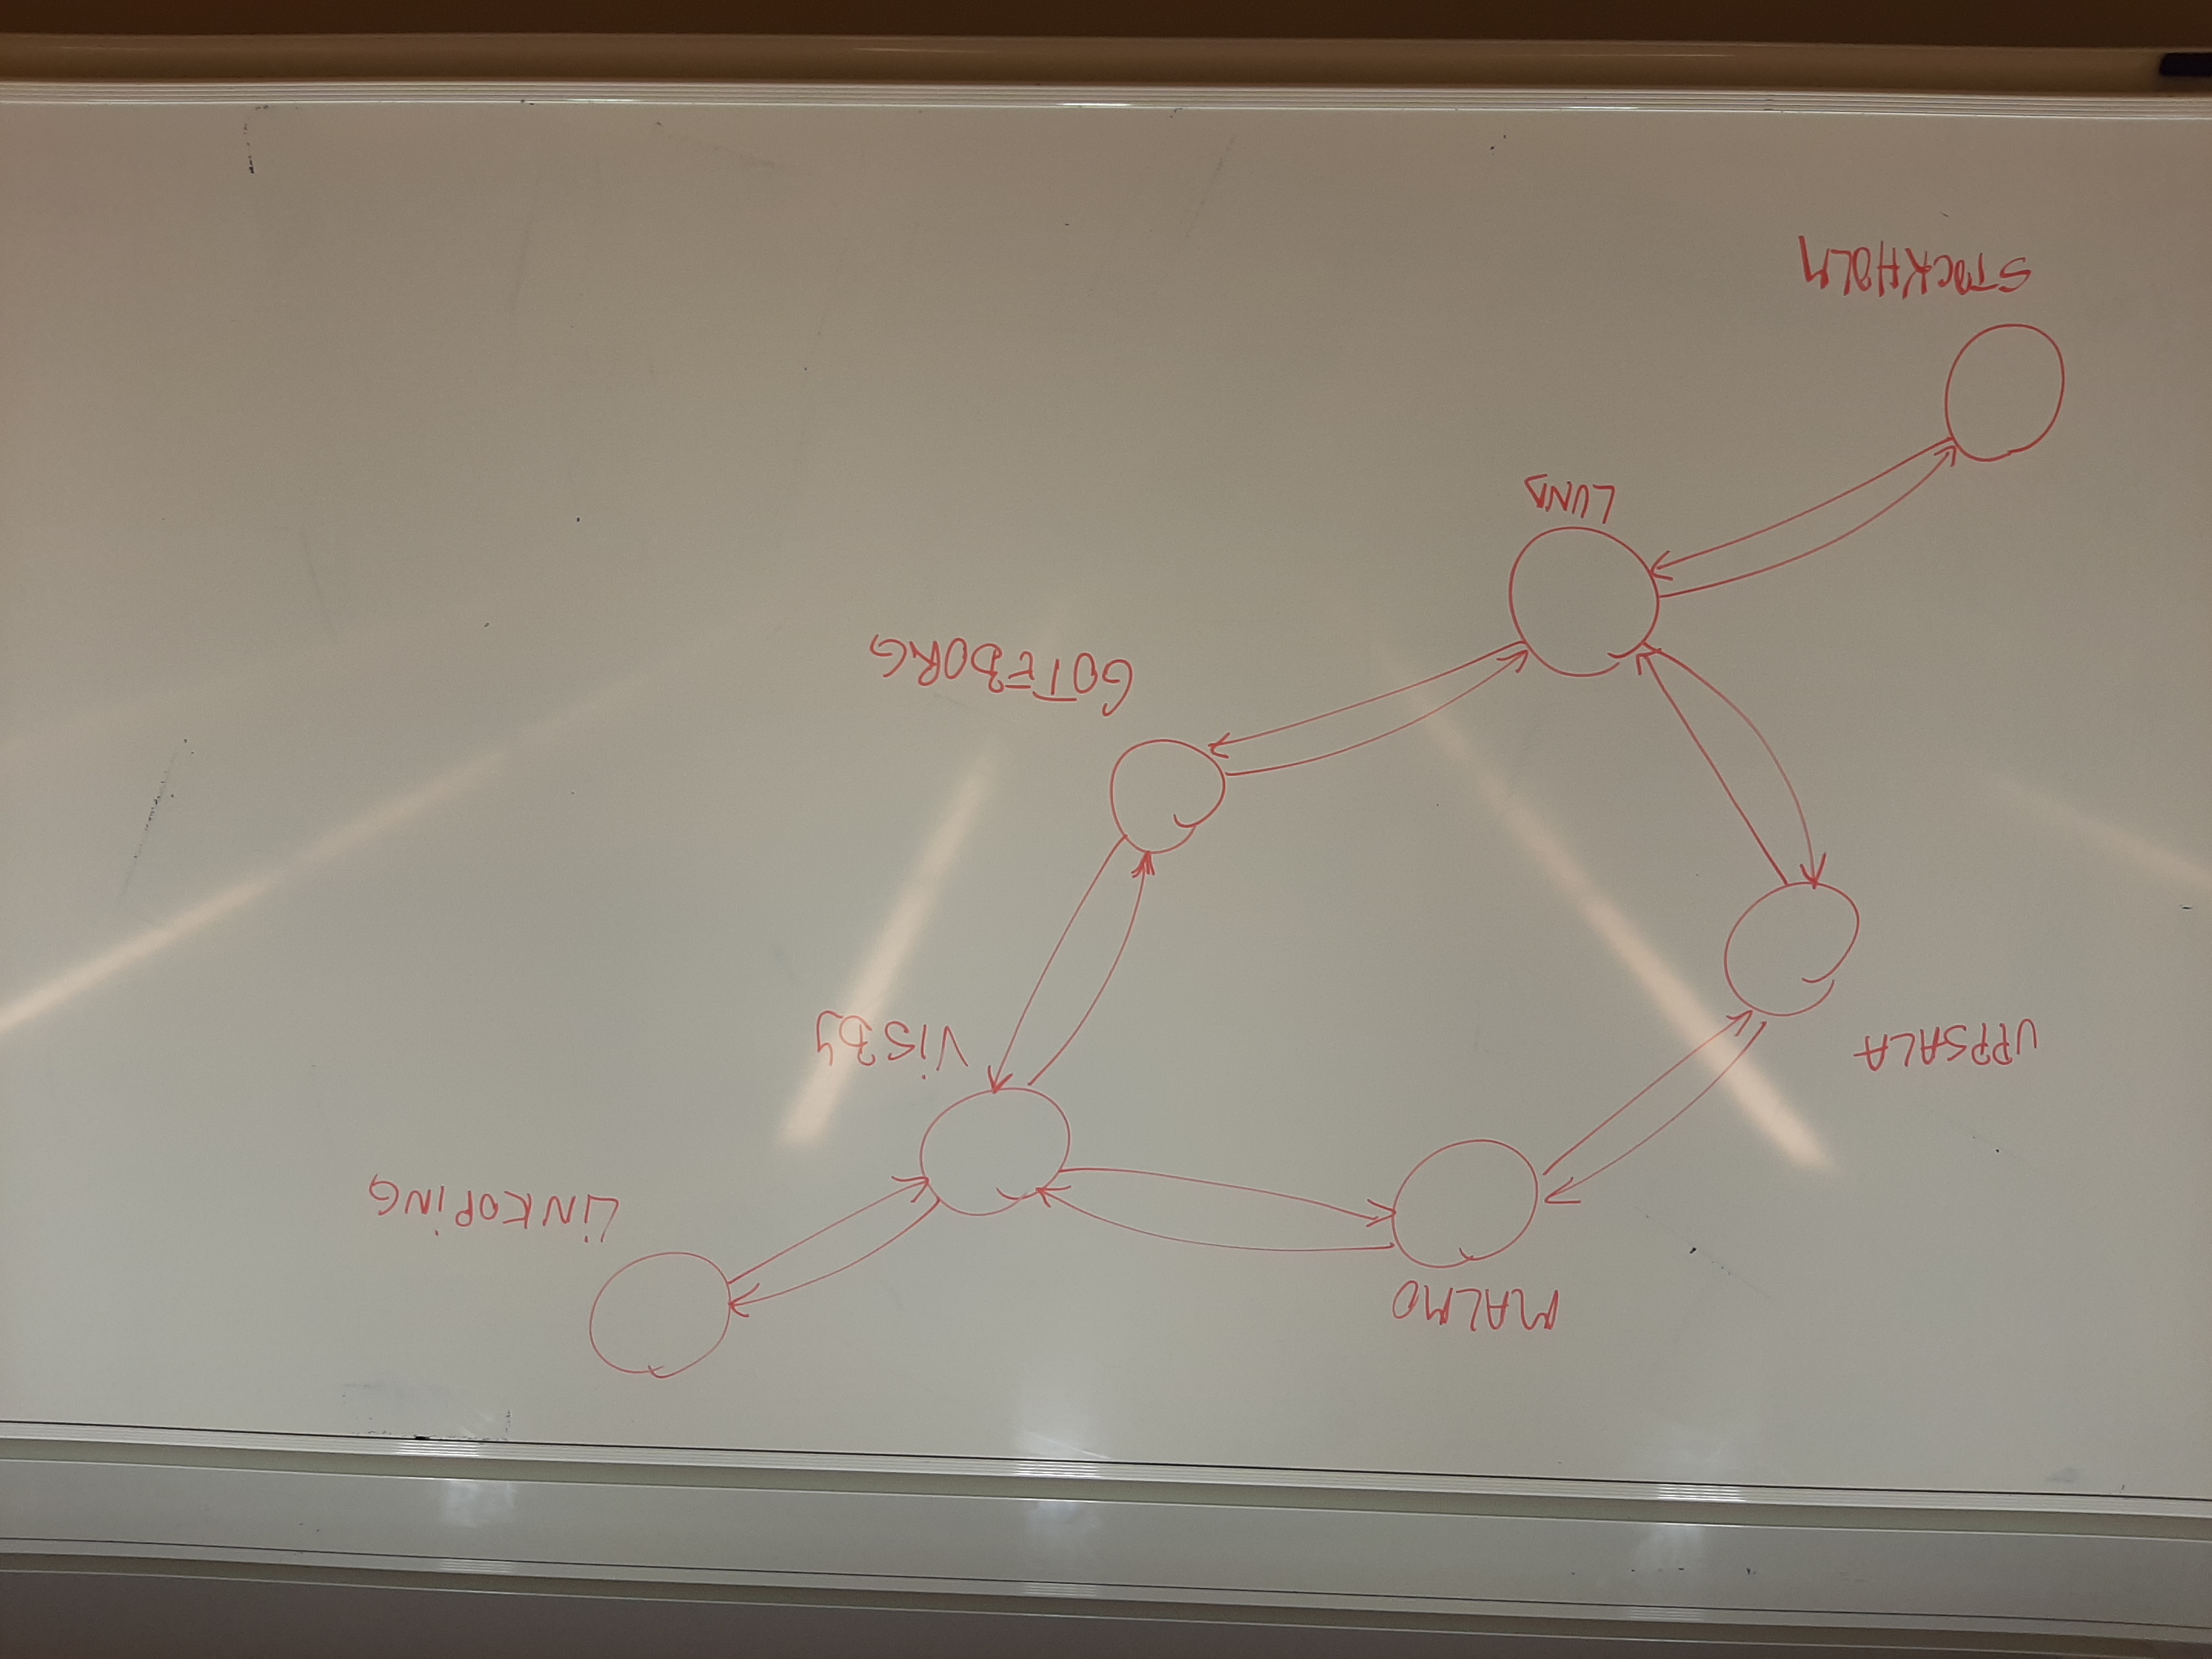 MALMO
LINKOPING
UPPSALA
VISBY
GOTEBORG
LUND
STOCKHOLM